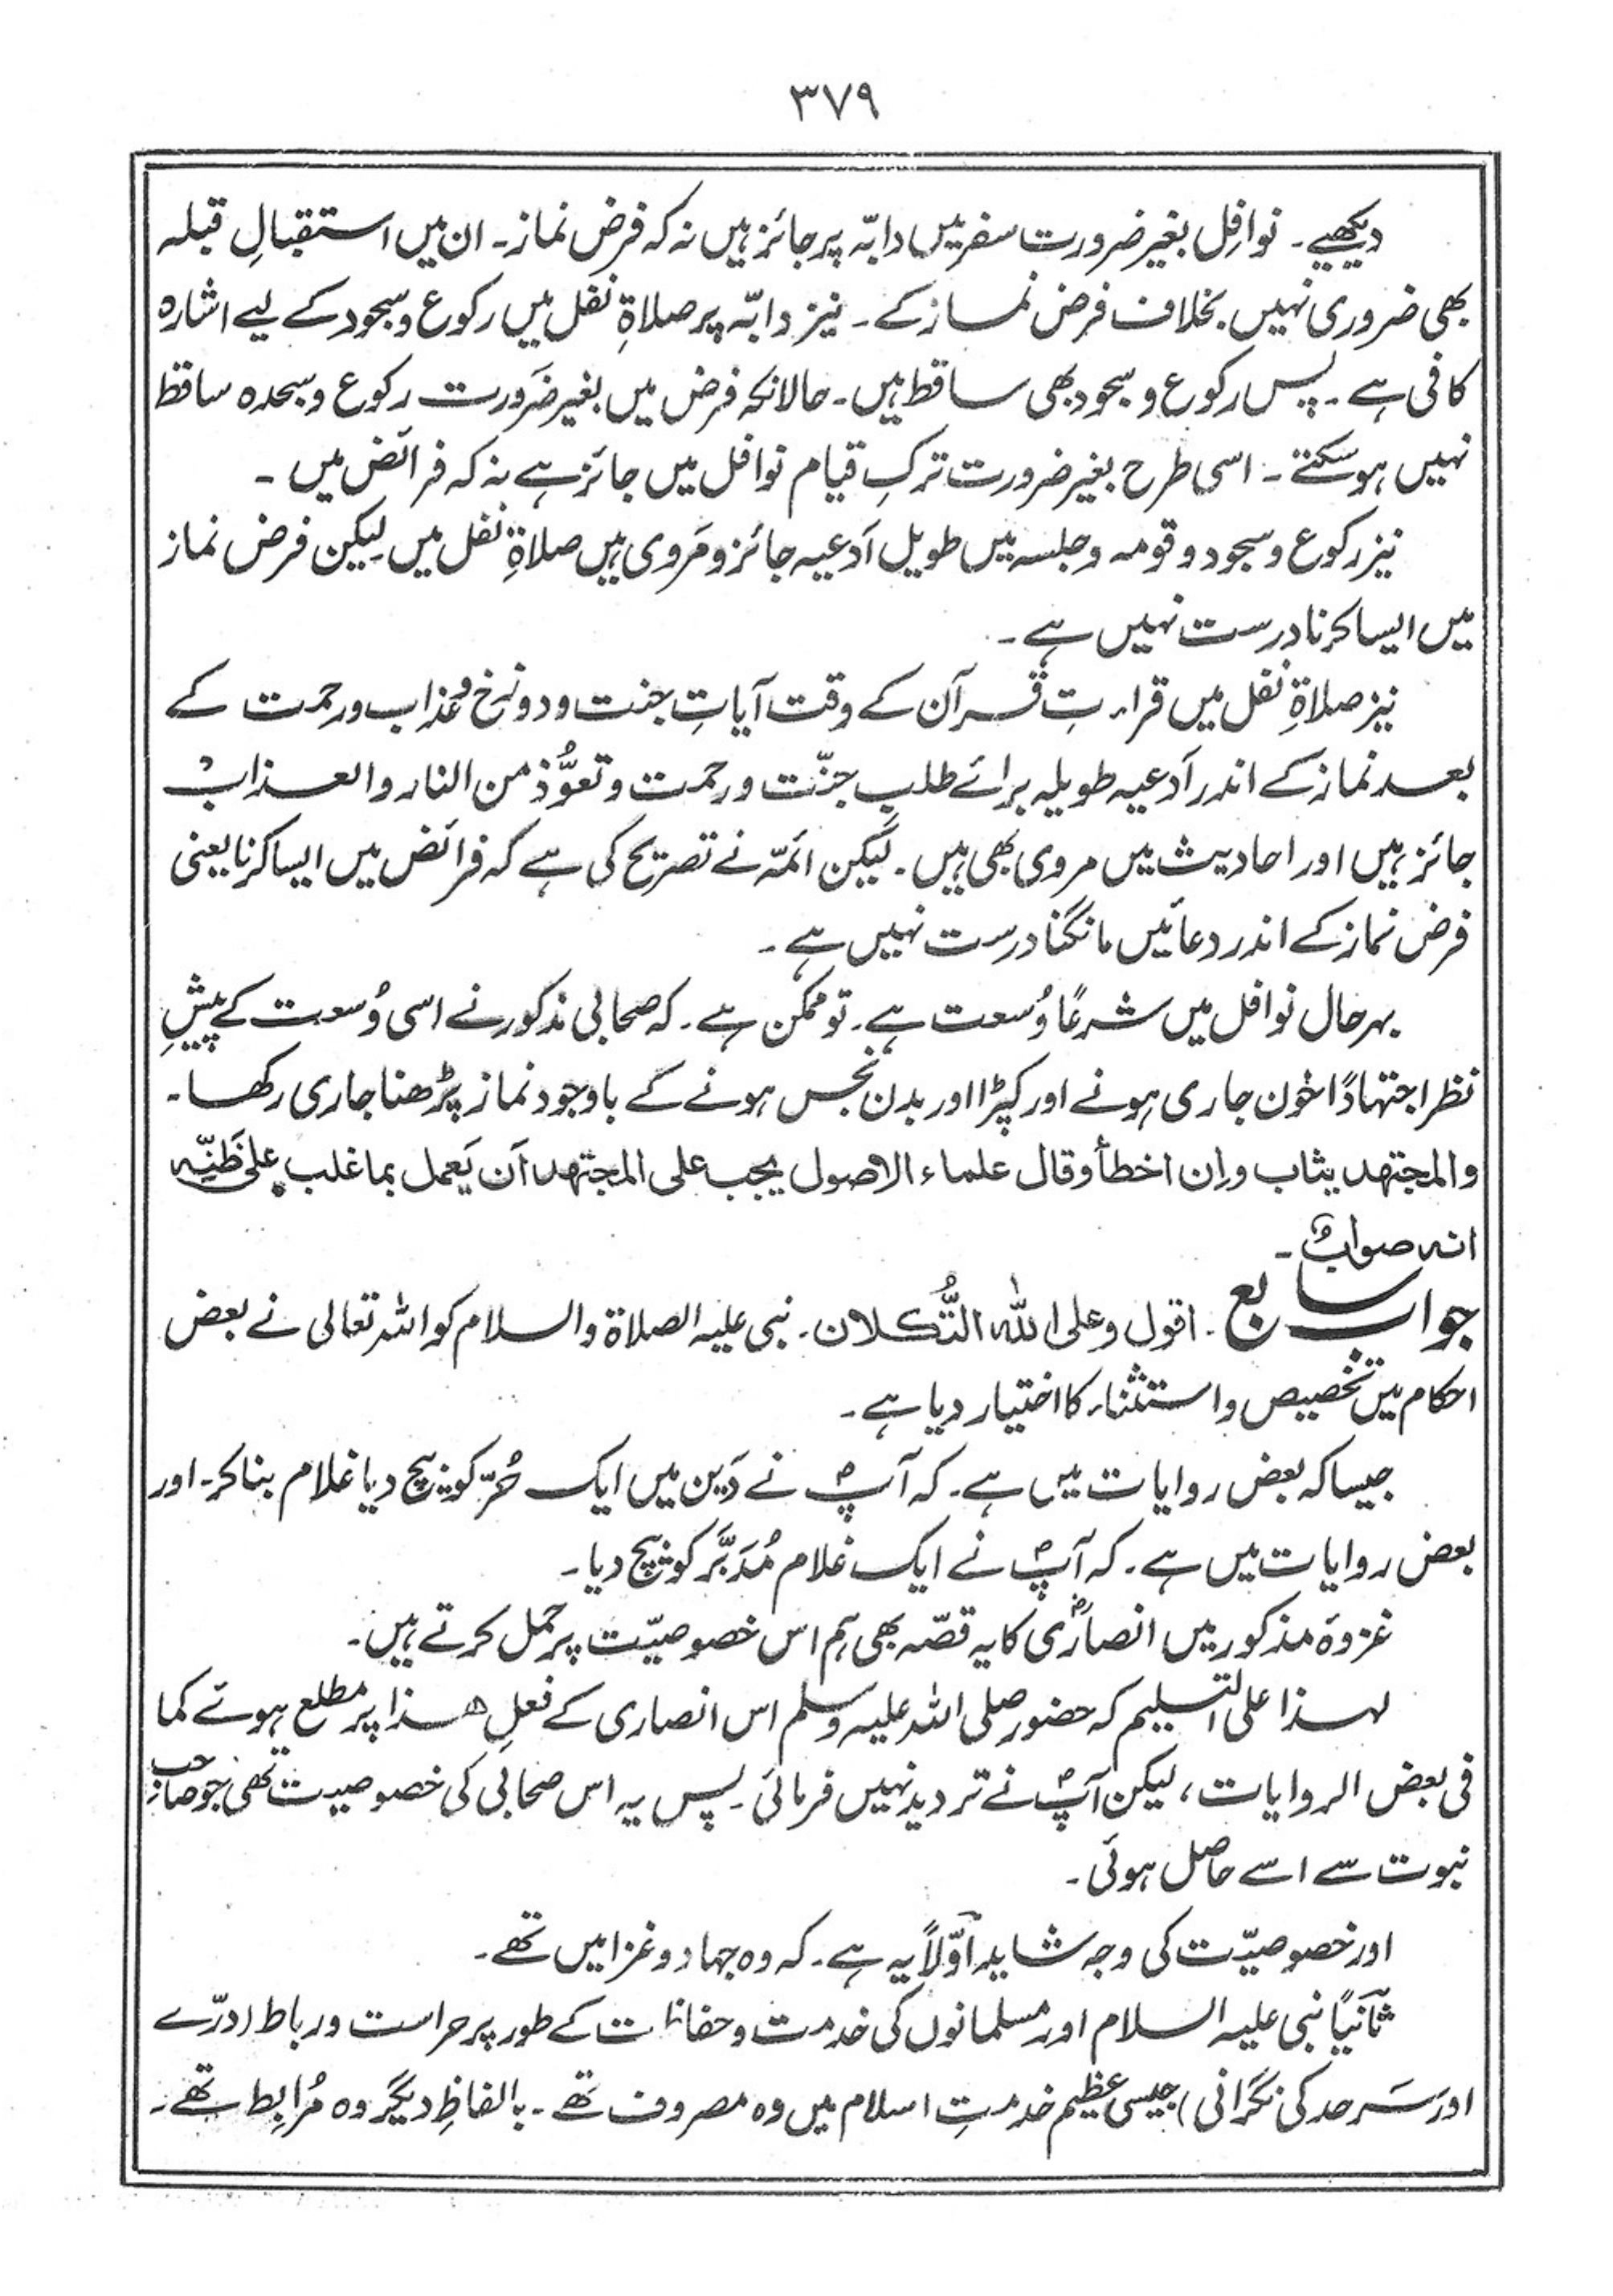 ۳۷۹
دیکھیے ۔ نوافِل بغیر ضرورت سفر میں دابّہ پر جائز ہیں نہ کہ فرض نماز ۔ ان میں استقبالِ قبلہ
بھی ضروری نہیں بخلاف فرض نماز کے ۔ نیز دابّہ پر صلاۃِ نفل میں رکوع و سجود کے لیے اشارہ
کافی ہے ۔ پس رکوع و سجود بھی ساقط ہیں ۔ حالانکہ فرض میں بغیر ضَرورت رکوع و سجدہ ساقط
نہیں ہوسکتے ۔ اسی طرح بغیر ضرورت ترکِ قیام نوافل میں جائز ہے نہ کہ فرائض میں ۔
نیز رکوع و سجود و قومہ و جلسہ میں طویل اَدعیہ جائز و مَروی ہیں صلاۃِ نفل میں لیکن فرض نماز
میں ایسا کرنا درست نہیں ہے ۔
نیز صلاۃِ نفل میں قراءتِ قرآن کے وقت آیاتِ جنت و دوزخ و عذاب و رحمت کے
بعد نماز کے اندر اَدعیہ طویلہ برائے طلبِ جنّت و رحمت و تعوُّذ من النار والعذاب
جائز ہیں اور احادیث میں مروی بھی ہیں ۔ لیکن ائمّہ نے تصریح کی ہے کہ فرائض میں ایسا کرنا یعنی
فرض نماز کے اندر دعائیں مانگنا درست نہیں ہے ۔
بہر حال نوافل میں شرعًا وُسعت ہے ۔ تو ممکن ہے ۔ کہ صحابی مذکور نے اسی وُسعت کے پیشِ
نظر اجتہادًا خون جاری ہونے اور کپڑا اور بدن نجس ہونے کے باوجود نماز پڑھنا جاری رکھا ۔
والمجتهد یثاب وإن اخطأ وقال علماء الاصول یجب علی المجتهد اَن یَعمل بما غلب علی ظَنِّہ
انہ صوابٌ ۔
جواب سابع ۔ اقول وعلی اللہ التُّکلان ۔ نبی علیہ الصلاۃ والسلام کو اللہ تعالی نے بعض
احکام میں تخصیص و استثناء کا اختیار دیا ہے ۔
جیسا کہ بعض روایات میں ہے ۔ کہ آپؐ نے دَین میں ایک حُرّ کو بیچ دیا غلام بنا کر ۔ اور
بعض روایات میں ہے ۔ کہ آپؐ نے ایک غلام مُدَبَّر کو بیچ دیا ۔
غزوۂ مذکور میں انصاریؓ کا یہ قصّہ بھی ہم اس خصوصیّت پر حمل کرتے ہیں ۔
لہذا علی التسلیم کہ حضور صلی اللہ علیہ وسلم اس انصاری کے فعلِ ھذا پر مطلع ہوئے کما
فی بعض الروایات ، لیکن آپؐ نے تردید نہیں فرمائی ۔ پس یہ اس صحابی کی خصوصیت تھی جو صاحبِ
نبوت سے اسے حاصل ہوئی ۔
اور خصوصیّت کی وجہ شاید اوّلاً یہ ہے ۔ کہ وہ جہاد و غزا میں تھے ۔
ثانیًا نبی علیہ السلام اور مسلمانوں کی خدمت و حفاظت کے طور پر حراست و رباط (درّے
اور سَرحد کی نگرانی) جیسی عظیم خدمتِ اسلام میں وہ مصروف تھے ۔ بالفاظِ دیگر وہ مُرابِط تھے ۔